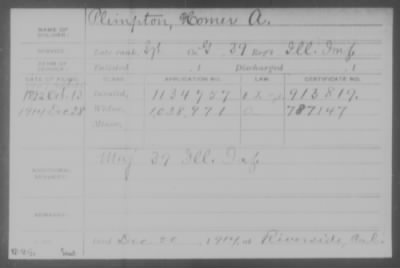 NAME OF SOLDIER: Plimpton, Homer A.
SERVICE: Late rank, Co. G, 39 Regt. Ill. Inf.
TERM OF SERVICE: Enlisted , 1 Discharged , 1
DATE OF FILING. CLASS. APPLICATION NO. LAW. CERTIFICATE NO.
Invalid, 1134957 913819.
1914 Dec 28 Widow, 1038,971 787147
Minor,
ADDITIONAL SERVICES: Maj 39 Ill. Inf.
REMARKS:
Died Dec 20, 1914, at Riverside, Cal.